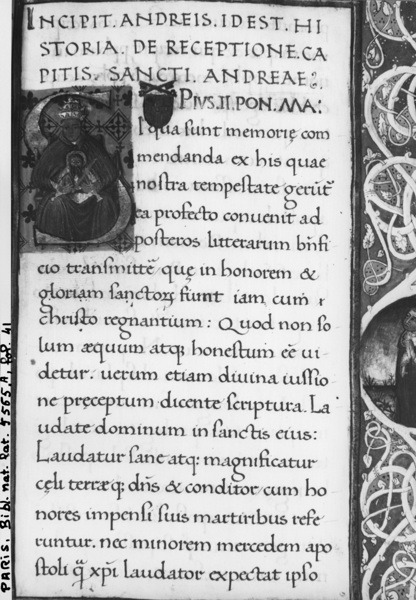 INCIPIT. ANDREIS. IDEST. HI
STORIA. DE RECEPTIONE. CA
PITIS. SANCTI. ANDREAE.
PIVS. II. PON. MA:
SI qua sunt memorię com
mendanda ex his quae
nostra tempestate gerūt᷑
ea profecto convenit ad
posteros litterarum bn̄fi
cio transmittē que in honorem &
gloriam sanctoꝝ fiunt iam cum
christo regnantium: Quod non so
lum æquum atqꝫ honestum eē ui
detur. uerum etiam diuina iussio
ne pręceptum dicente scriptura. La
udate dominum in sanctis eius:
Laudatur sane atqꝫ magnificatur
cęli terræqꝫ dn̄s & conditor cum ho
nores impensi suis martiribus refe
runtur. nec minorem mercedem apo
stoli q̄ xp̄i laudator expectat ipso
PARIS. Bibl. nat. Lat. 5565 A, fol. 41